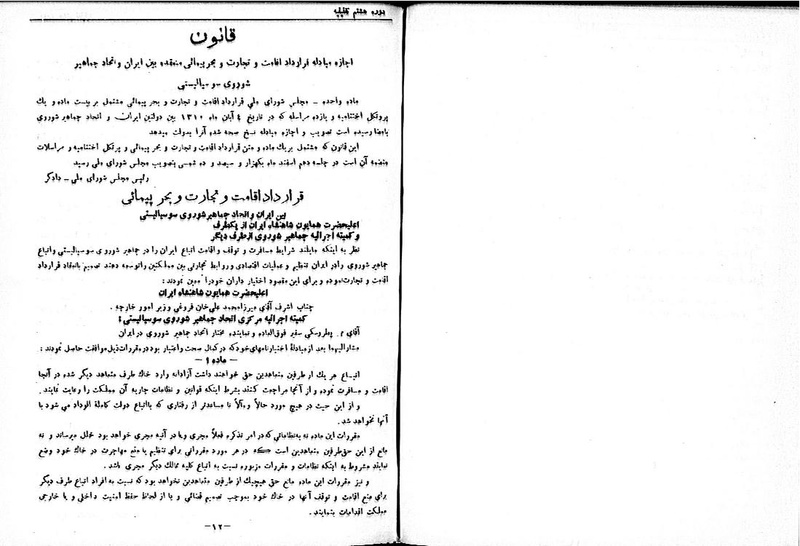 دوره هشتم تقنینیه
قانون
اجازه مبادله قرارداد اقامت و تجارت و بحر پیمائی منعقده بین ایران و اتحاد جماهیر
شوروی سوسیالیستی
ماده واحده - مجلس شورای ملی قرارداد اقامت و تجارت و بحر پیمائی مشتمل بر بیست ماده و یك
پروتکل اختتامیه و یازده مراسله که در تاریخ ٤ آبان ماه ۱۳۱۰ بین دولتین ایران و اتحاد جماهیر شوروی
بامضا رسیده است تصویب و اجازه مبادله نسخ صحه شده آنرا بدولت میدهد
این قانون که مشتمل بر یك ماده و متن قرارداد اقامت و تجارت و بحر پیمائی و پروتکل اختتامیه و مراسلات
منضمه آن است در جلسه دهم اسفند ماه یکهزار و سیصد و ده شمسی بتصویب مجلس شورای ملی رسید
رئیس مجلس شورای ملی - دادگر
قرارداد اقامت و تجارت و بحر پیمائی
بین ایران و اتحاد جماهیر شوروی سوسیالیستی
اعلیحضرت همایون شاهنشاه ایران از یکطرف
و کمیته اجرائیه جماهیر شوروی از طرف دیگر
نظر به اینکه مایلند شرایط مسافرت و توقف و اقامت اتباع ایران را در جماهیر شوروی سوسیالیستی و اتباع
جماهیر شوروی را در ایران تنظیم و عملیات اقتصادی و روابط تجارتی بین مملکتین را توسعه دهند تصمیم بانعقاد قرارداد
اقامت و تجارت نموده و برای این مقصود اختیار داران خود را معین نمودند :
اعلیحضرت همایون شاهنشاه ایران
جناب اشرف آقای میرزا محمد علی خان فروغی وزیر امور خارجه .
کمیته اجرائیه مرکزی اتحاد جماهیر شوروی سوسیالیستی :
آقای م . پطروسکی سفیر فوق العاده و نماینده مختار اتحاد جماهیر شوروی در ایران
مشارالیهما بعد از مبادلهٔ اختیارنامهای خود که در کمال صحت و اعتبار بود در مقررات ذیل موافقت حاصل نمودند :
- ماده ۱ -
اتباع هر یك از طرفین متعاهدین حق خواهند داشت آزادانه وارد خاك طرف متعاهد دیگر شده در آنجا
اقامت و مسافرت نموده و از آنجا مراجعت کنند بشرط اینکه قوانین و نظامات جاریه آن مملکت را رعایت نمایند .
و از این حیث در هیچ مورد حالاً و مآلاً نا مساعدتر از رفتاری که با اتباع دولت کاملة الوداد می شود با
آنها نخواهد شد .
مقررات این ماده نه به نظاماتی که در امر تذکره فعلاً مجری و یا در آتیه مجری خواهد بود خلل میرساند و نه
مانع از این حق طرفین متعاهدین است که در هر مورد مقرراتی برای تنظیم یا منع مهاجرت در خاك خود وضع
نمایند مشروط به اینکه نظامات و مقررات مزبوره نسبت به اتباع کلیه ممالك دیگر مجری باشد .
و نیز مقررات این ماده مانع حق هیچیك از طرفین متعاهدین نخواهد بود که نسبت به افراد اتباع طرف دیگر
برای منع اقامت و توقف آنها در خاك خود بموجب تصمیم قضائی و یا از لحاظ حفظ امنیت داخلی و یا خارجی
مملکت اقدامات بنمایند .
-۱۲-